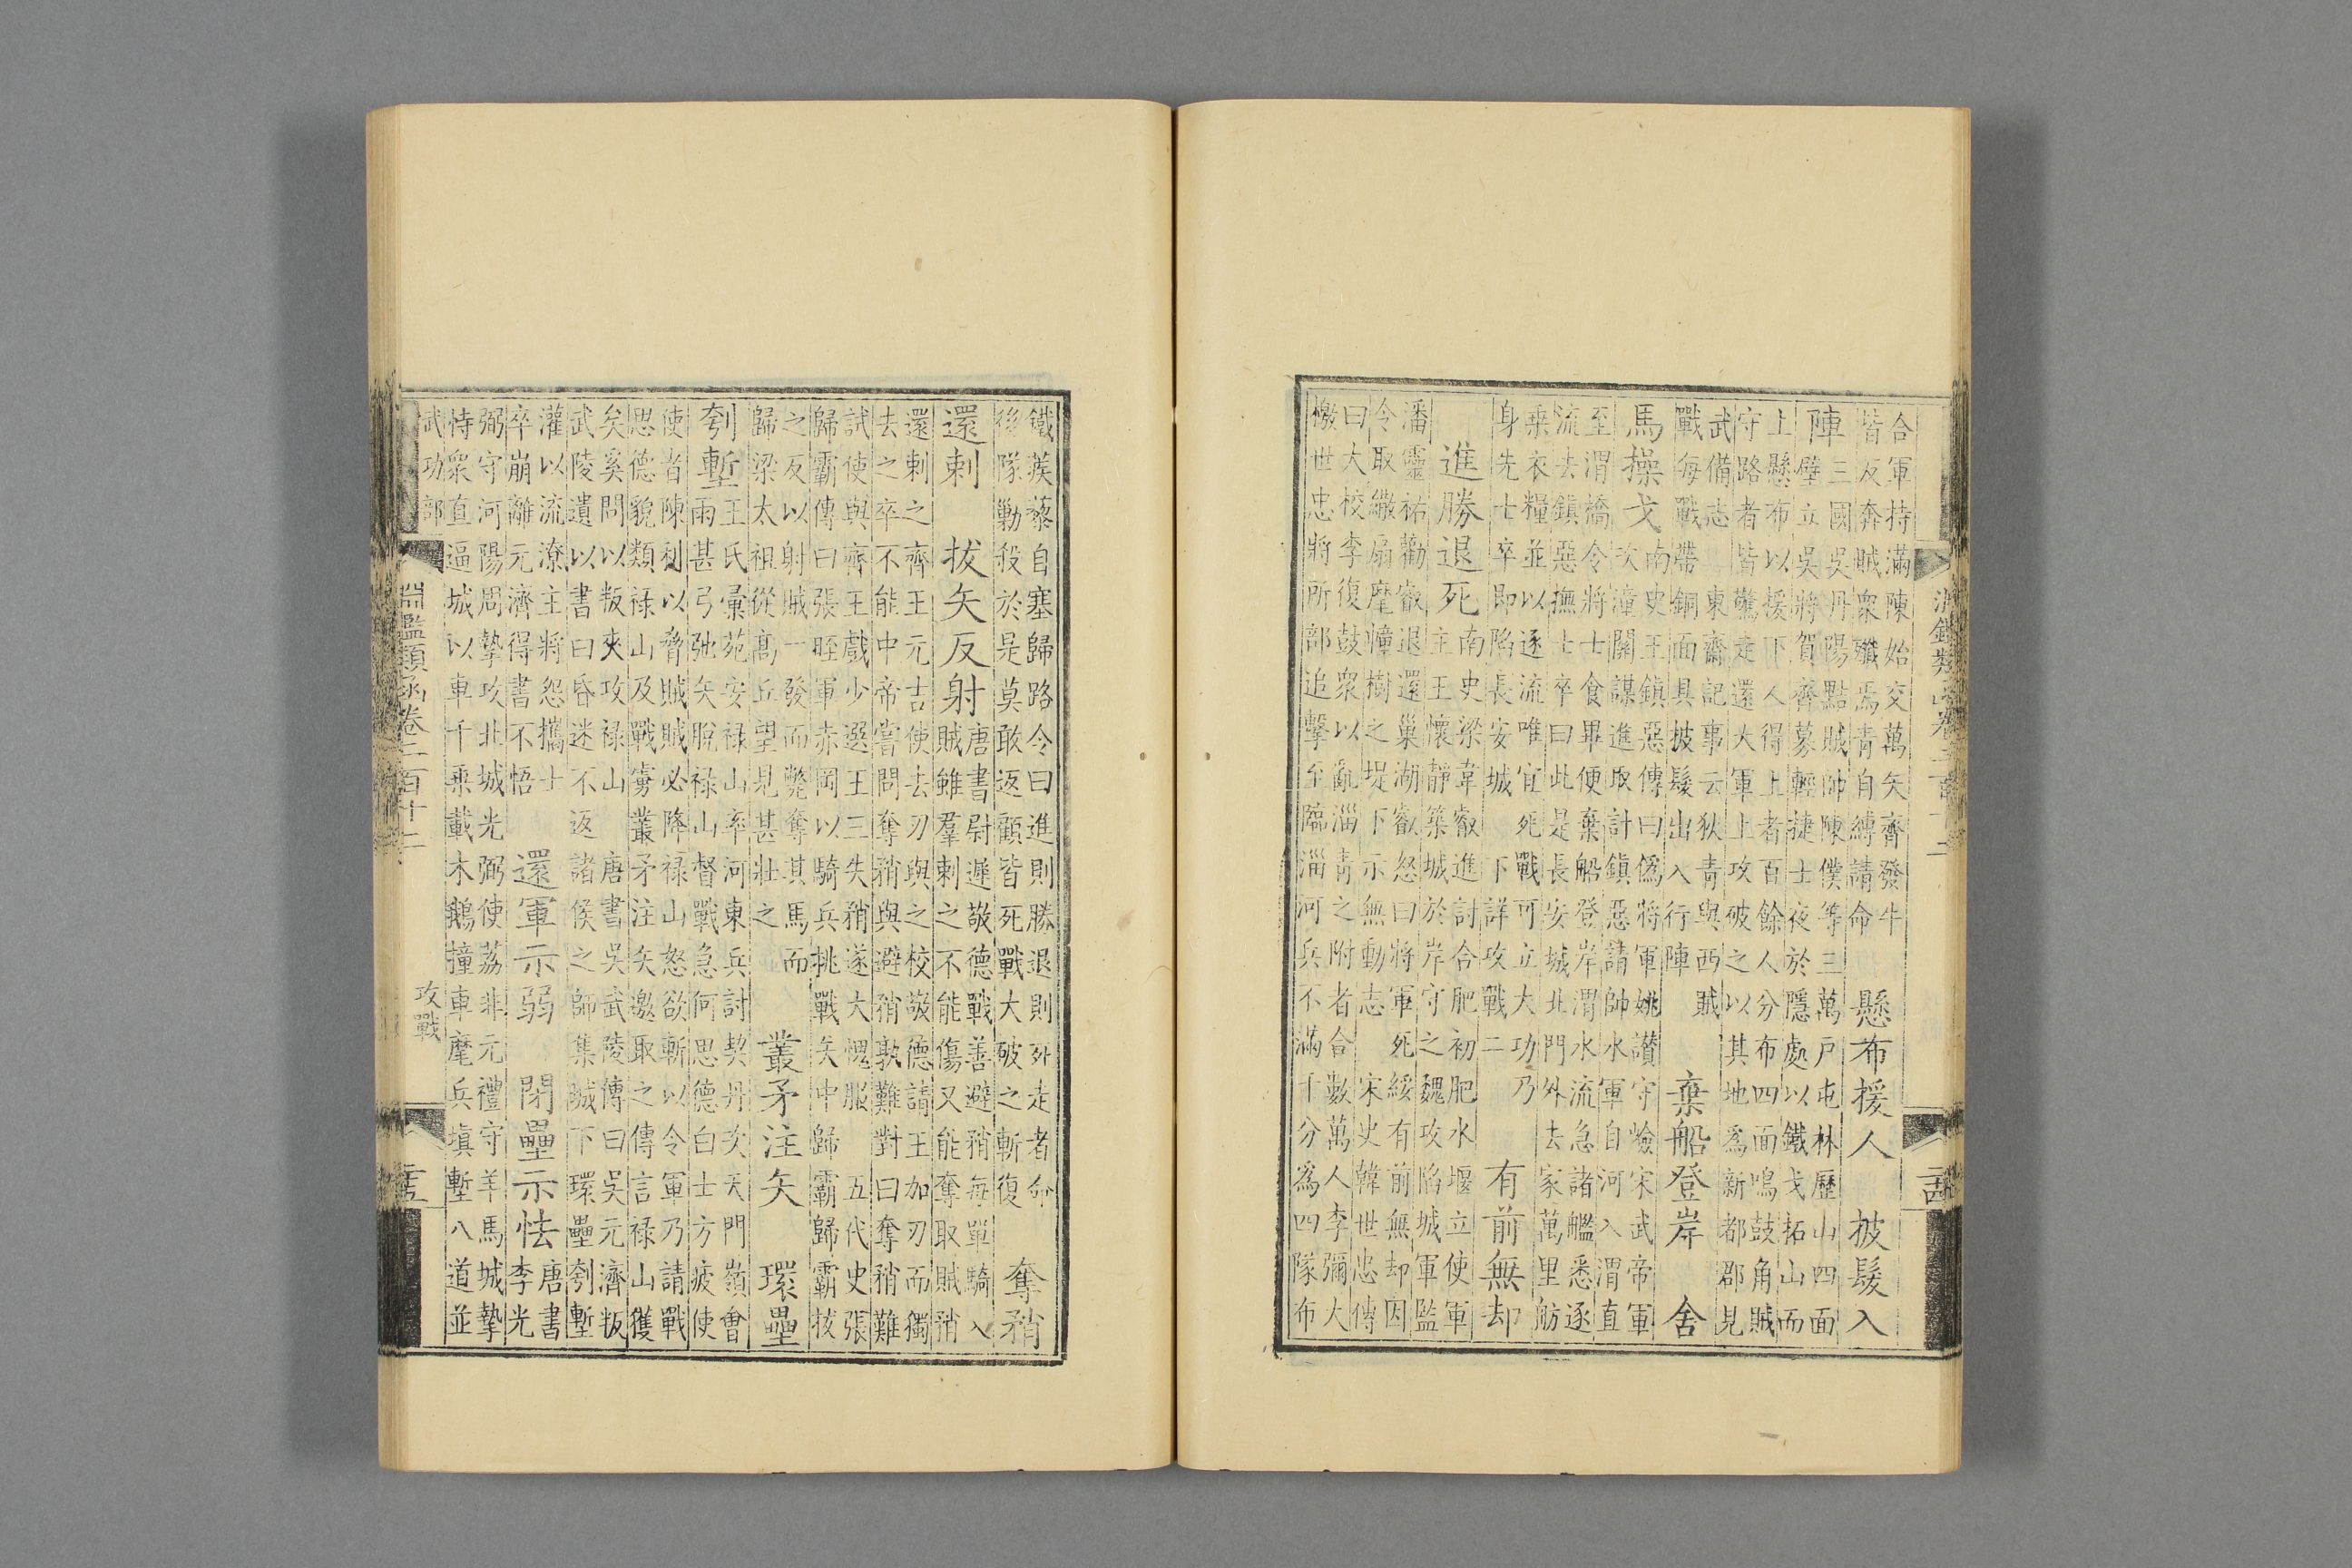 合軍持滿陳始交萬矢齊發牛
皆反奔賊衆殲焉青自縛請命
懸布援人 披髮入
陣
三國吳丹陽賊帥陳僕等三萬戶屯林歷山四面
壁立吳將賀齊募輕捷士夜於隱處以鐵戈拓山而
上懸布以援下人得上者百餘人分布四面鳴鼓角賊
守路者皆驚走還大軍上攻破之以其地爲新都郡見
武備志 東齋記事云狄青與西賊
戰每戰帶銅面具披髮出入行陣
棄船登岸 舍
馬操戈
南史王鎮惡傳曰爲將軍姚讃守嶮宋武帝軍
次潼關謀進取計鎮惡請帥水軍自河入渭直
至渭橋令將士食畢便棄船登岸渭水流急諸艦悉逐
流去鎮惡撫士卒曰此是長安城北門外去家萬里舫
乗衣糧並以逐流唯宜死戰可立大功乃
身先士卒即陷長安城 下詳攻戰二
有前無却
進勝退死
南史梁韋叡進討合肥初肥水堰立使軍
主王懷靜築城於岸守之魏攻陷城軍監
潘靈祐勸叡退還巢湖叡怒曰將軍死綏有前無却因
令取繖扇麾幢樹之堤下示無動志 宋史韓世忠傳
曰大校李復鼓衆以亂淄青之附者合數萬人李彌大
檄世忠將所部追擊至臨淄河兵不滿千分爲四隊布
鐵蒺藜自塞歸路令曰進則勝退則死走者命
後隊勦殺於是莫敢返顧皆死戰大破之斬復
奪矟
還刺 拔矢反射
唐書尉遲敬德戰善避矟每單騎入
賊雖羣刺之不能傷又能奪取賊矟
還刺之齊王元吉使去刃與之校敬德請王加刃而獨
去之卒不能中帝嘗問奪矟與避矟孰難對曰奪矟難
試使與齊王戲少選王三失矟遂大愧服 五代史張
歸霸傳曰張晊軍赤岡以騎兵挑戰矢中歸霸歸霸拔
之反以射賊一發而斃奪其馬而
歸梁太祖從高丘望見甚壯之
叢矛注矢 環壘
刳塹
王氏彙苑安禄山率河東兵討契丹次天門嶺會
雨甚弓弛矢脫禄山督戰急何思德白士方疲使
使者陳利以脅賊賊必降禄山怒欲斬以令軍乃請戰
思德貌類禄山及戰虜叢矛注矢邀取之傳言禄山獲
矣奚問以叛夾攻禄山 唐書吳武陵傳曰吳元濟叛
武陵遺以書曰昏迷不返諸侯之師集賊下環壘刳塹
灌以流潦主將怨攜士
卒崩離元濟得書不悟
還軍示弱 閉壘示怯
唐書
李光
弼守河陽周摯攻北城光弼使荔非元禮守羊馬城摯
恃衆直逼城以車千乗載木鵝撞車麾兵塡塹八道並
武功部
淵鑑類函卷二百十二
攻戰